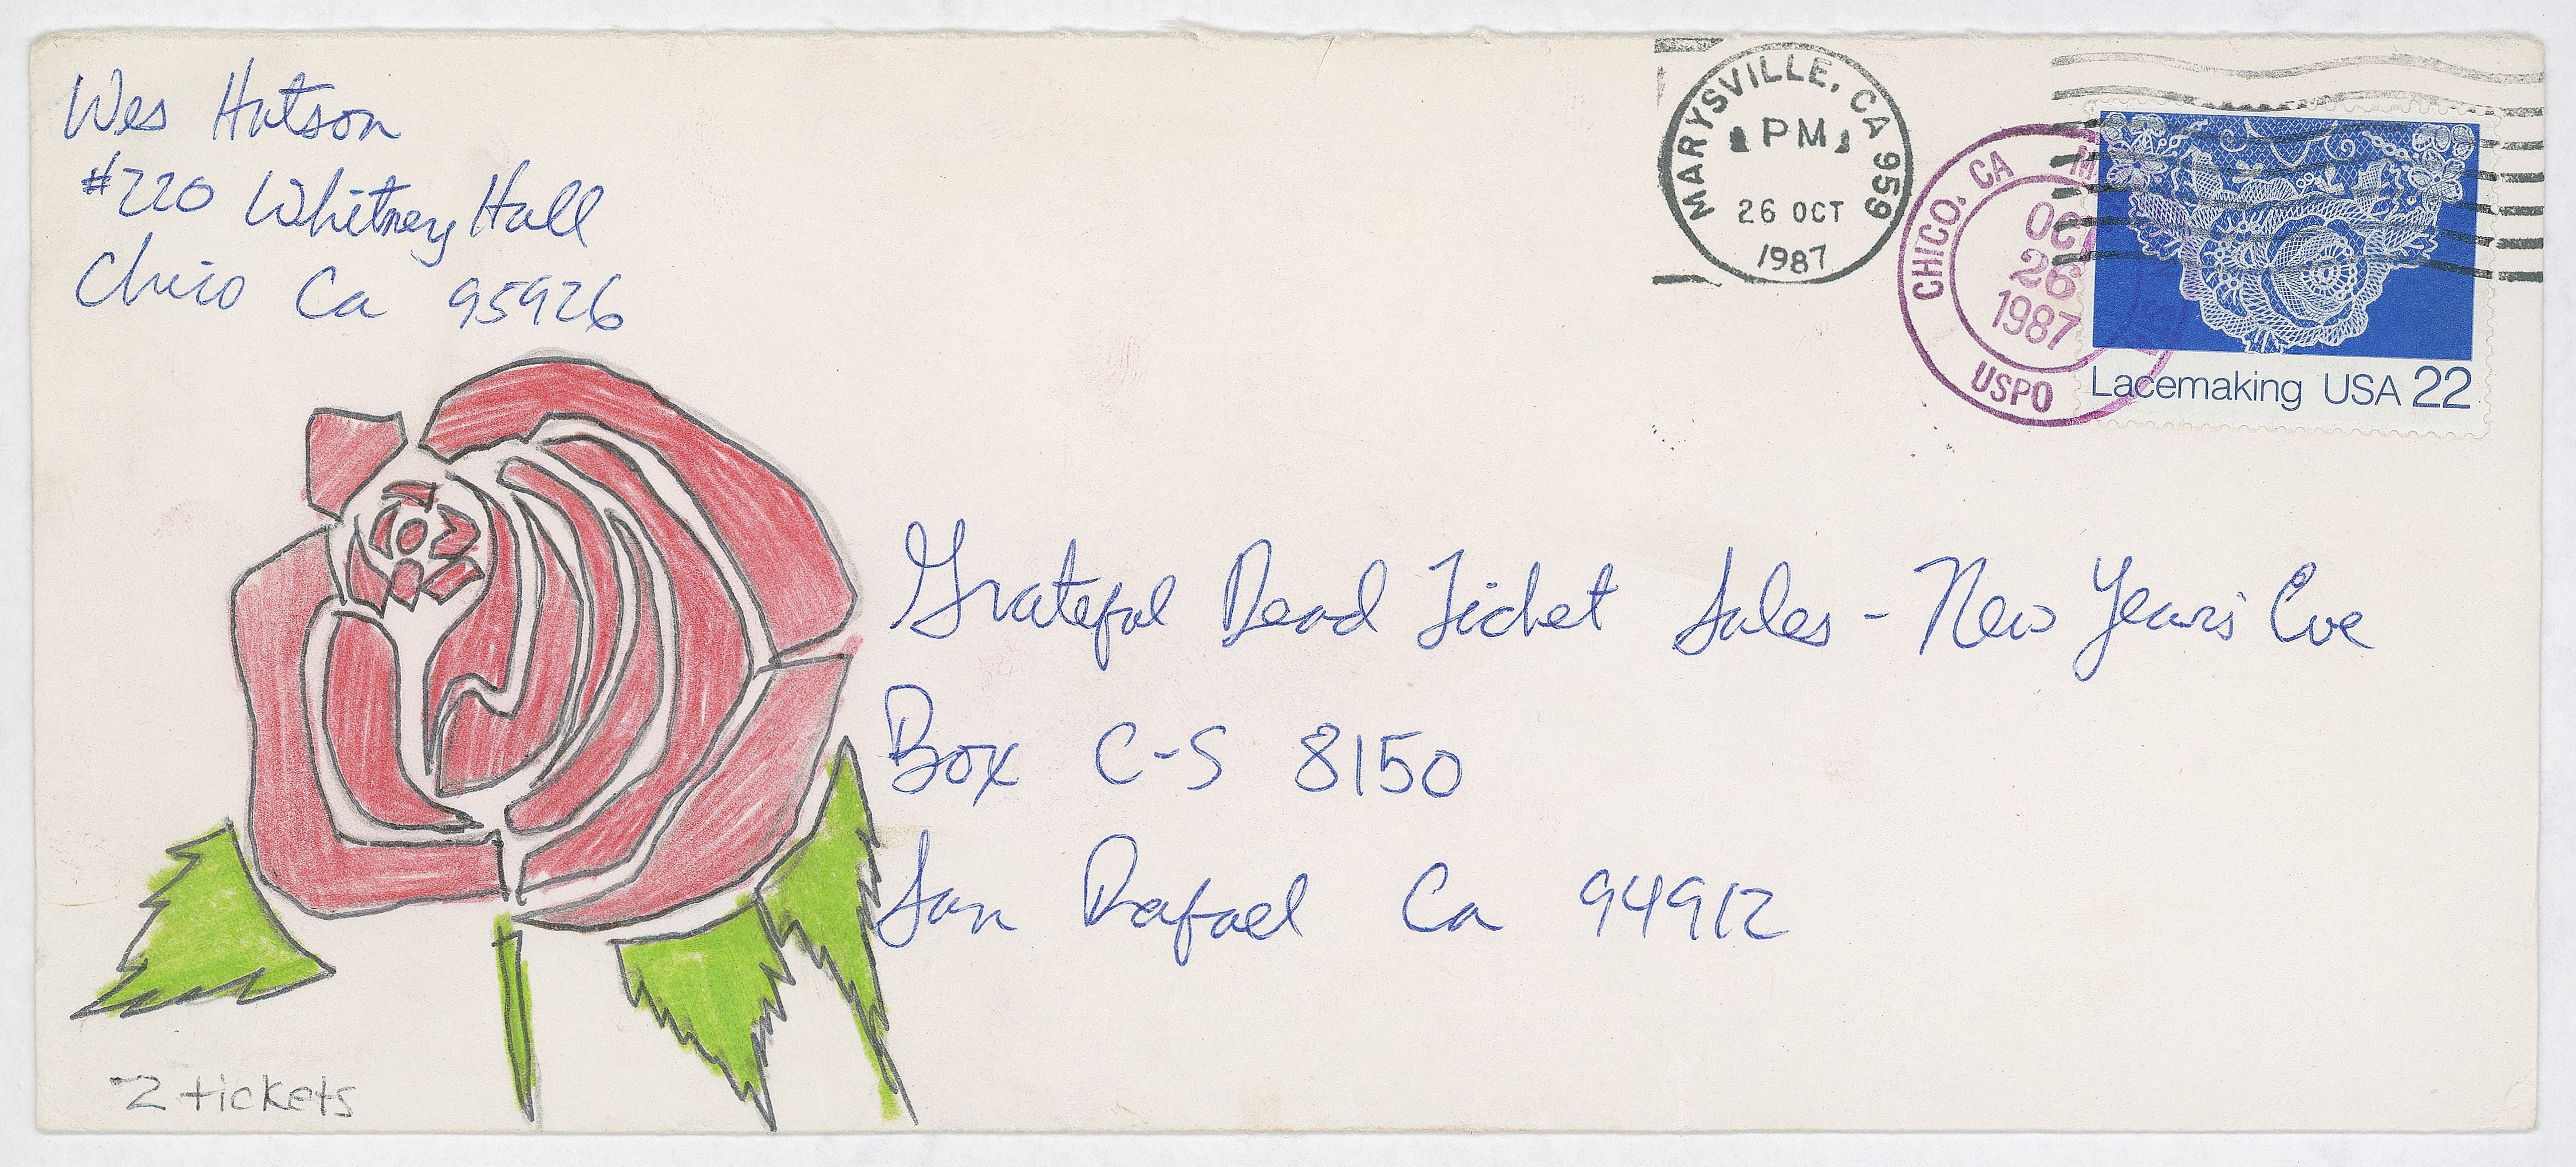 Wes Hutson
#220 Whitney Hall
Chico Ca 95926
MARYSVILLE, CA 959
PM
26 OCT
1987
CHICO, CA
OCT
26
1987
USPO
Lacemaking USA 22
Grateful Dead Ticket Sales - New Year's Eve
Box C-S 8150
San Rafael Ca 94912
2 tickets